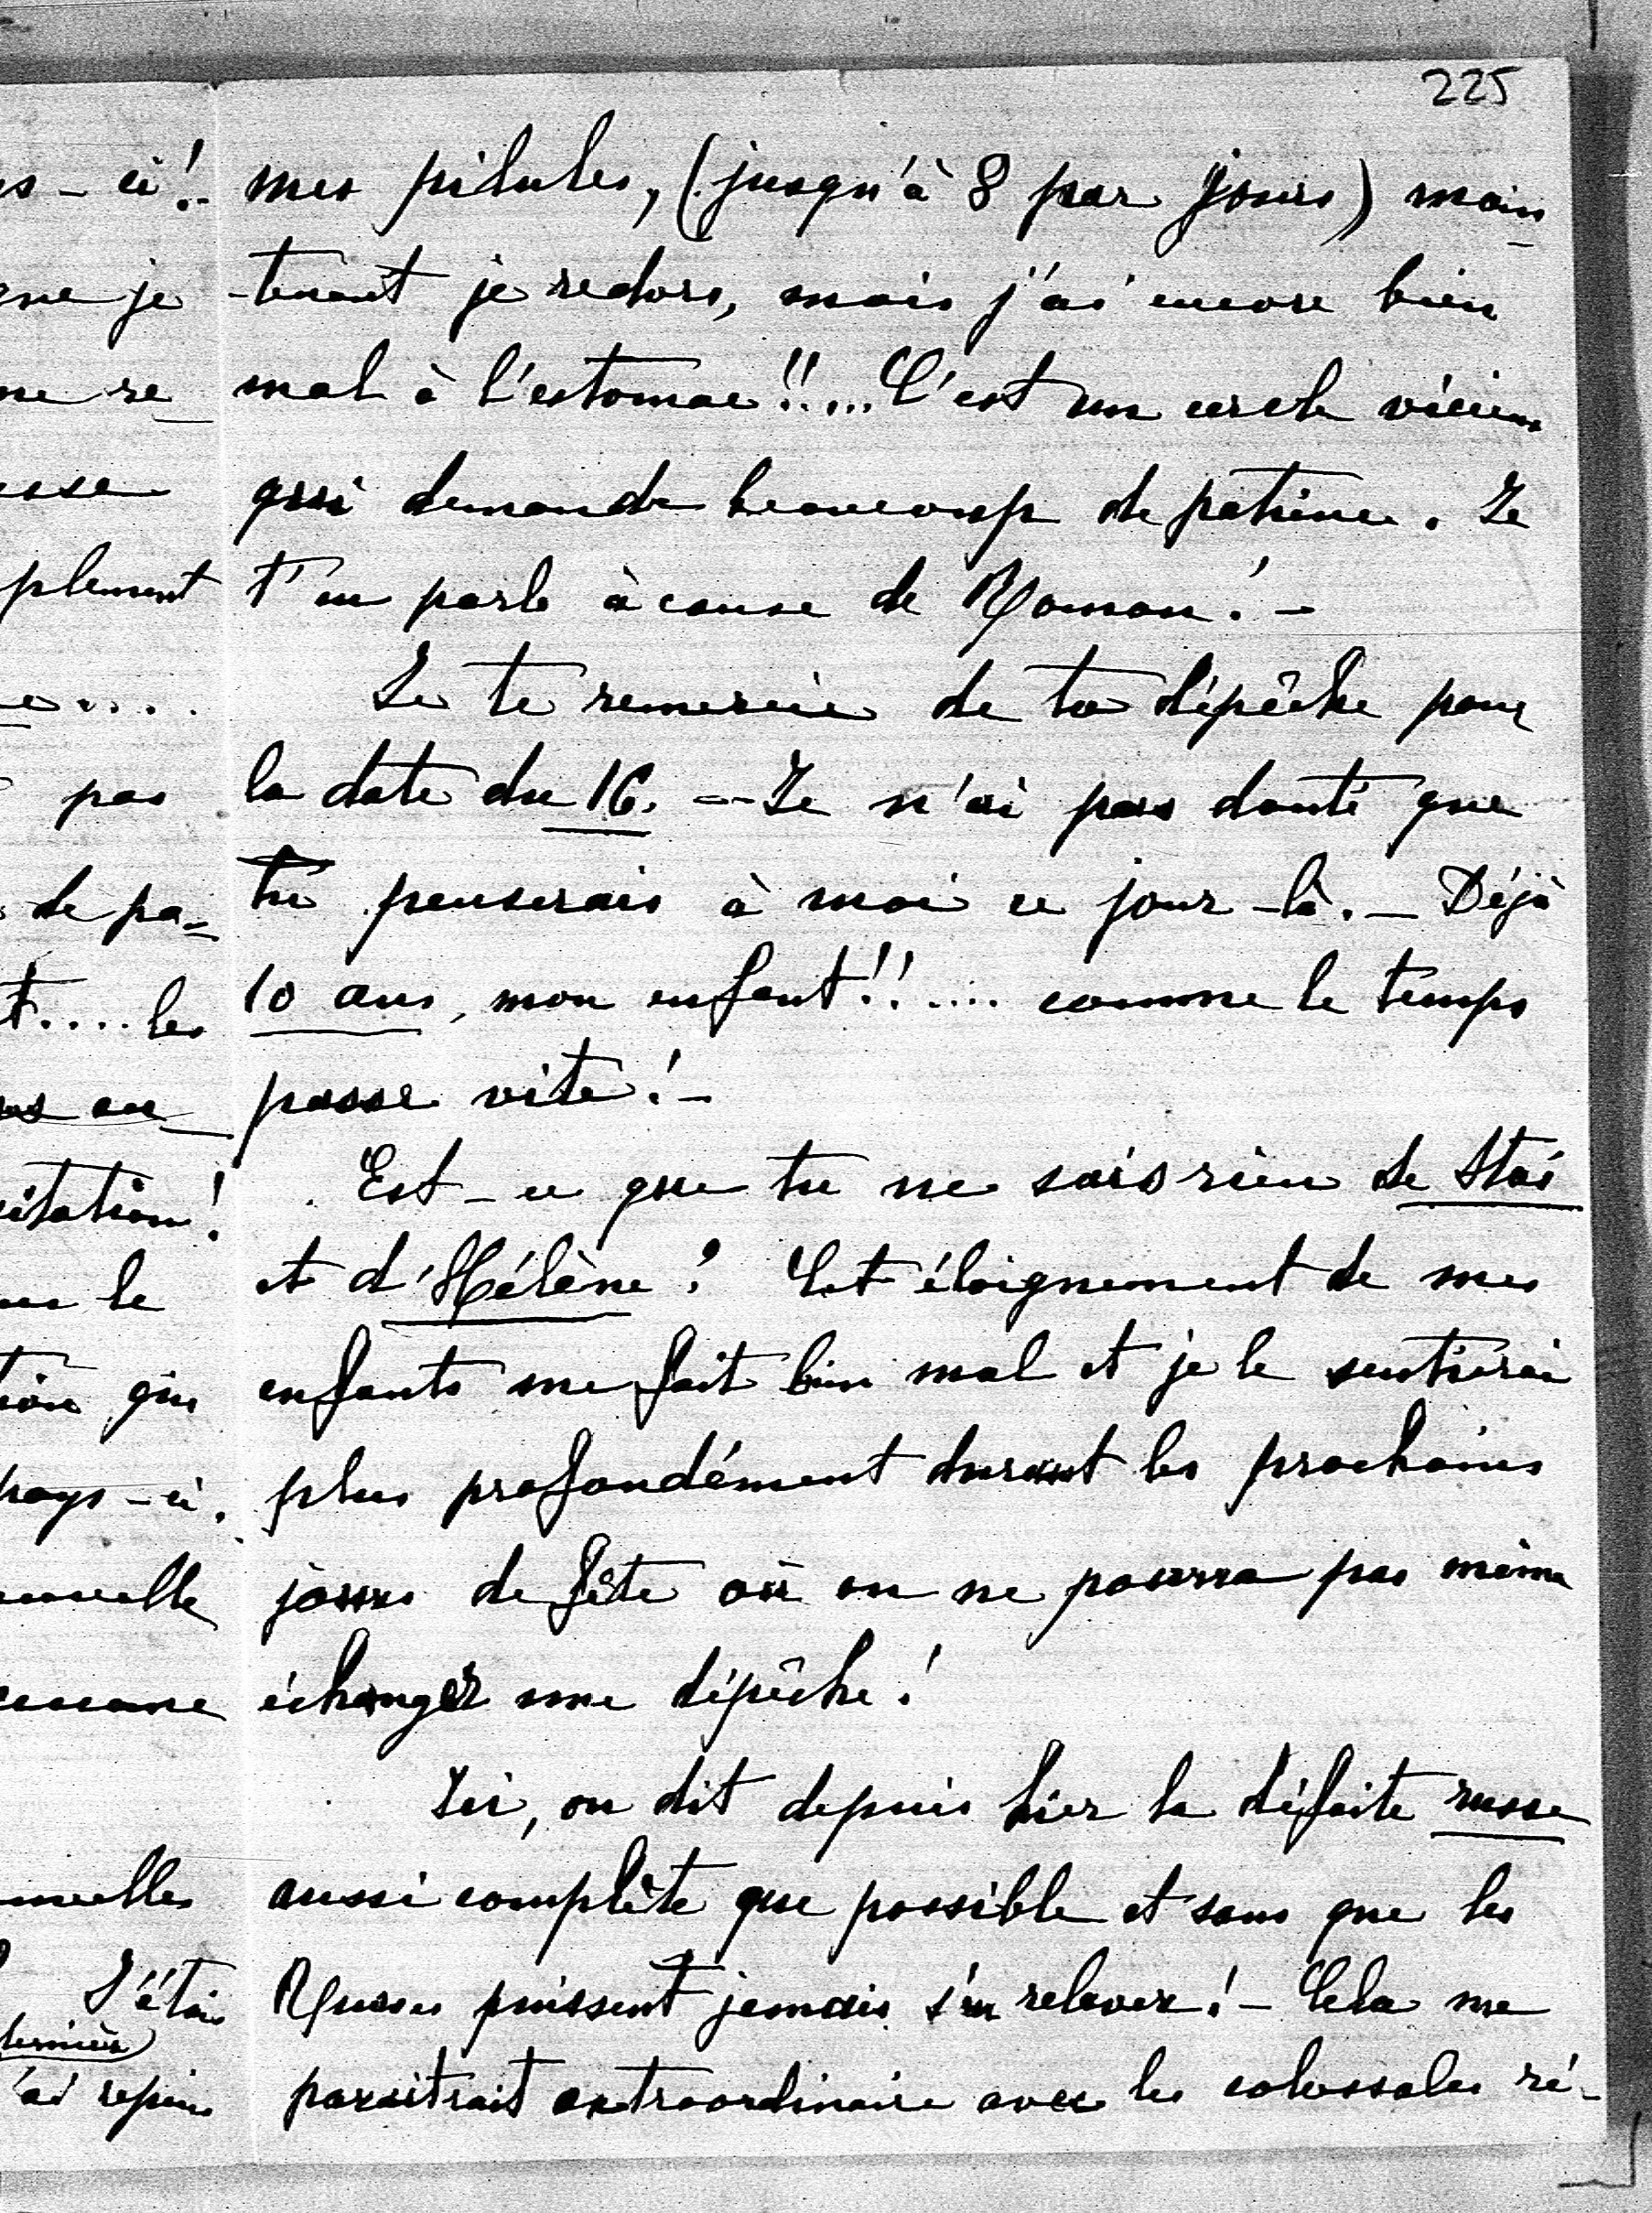 225
mes pilules, (jusqu'à 8 par jours) main-
-tenant je redors, mais j'ai encore bien
mal à l'estomac!!... C'est un cercle vicieux
qui demande beaucoup de patience. Je
t'en parle à cause de Roman! -
Je te remercie de ta dépêche pour
la date du 16. -- Je n'ai pas douté que
tu penserais à moi ce jour-là. - Déjà
10 ans, mon enfant!!..... comme le temps
passe vite! -
Est-ce que tu ne sais rien de Staś
et d'Hélène? Cet éloignement de mes
enfants me fait bien mal et je le sentirai
plus profondément durant les prochains
jours de fête où on ne pourra pas même
échanger une dépêche!
Ici, on dit depuis hier la défaite russe
aussi complète que possible et sans que les
Russes puissent jamais s'en relever! - Cela me
paraîtrait extraordinaire avec les colossales ré-
s-ci!-
que je
me re-
esse
plement
pas
de pa=
t.... les
itation!
le
tion qui
pays-ci.
nouvelle
nouvelles
J'étais
dernière
'ai repris